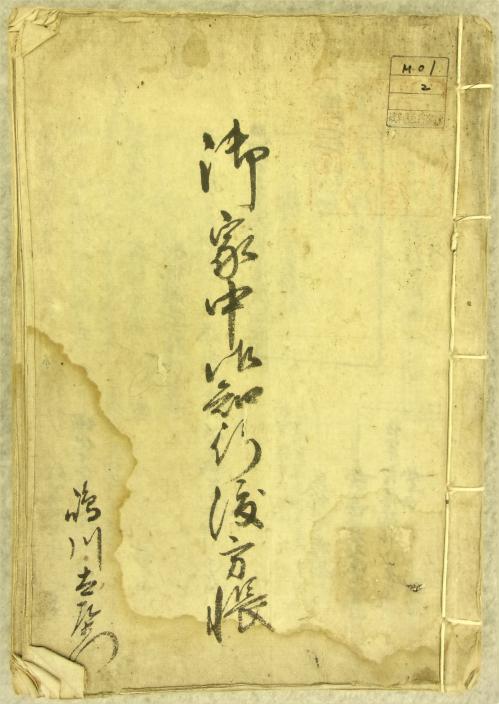 M-01
2
御家中御知行渡方帳
川